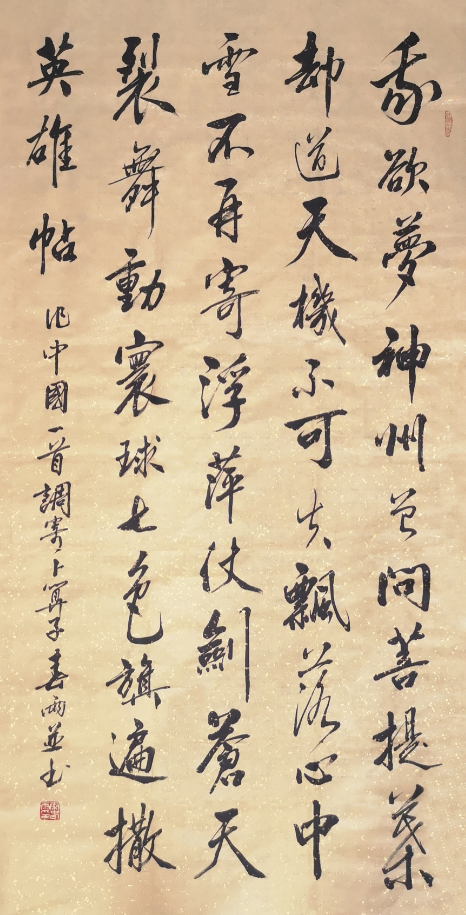 我欲夢神州曾問菩提葉
却道天機不可失飄落心中
雪不再寄浮萍仗劍蒼天
裂舞動寰球七色旗遍撒
英雄帖
作中國一首調寄卜算子春雨並书